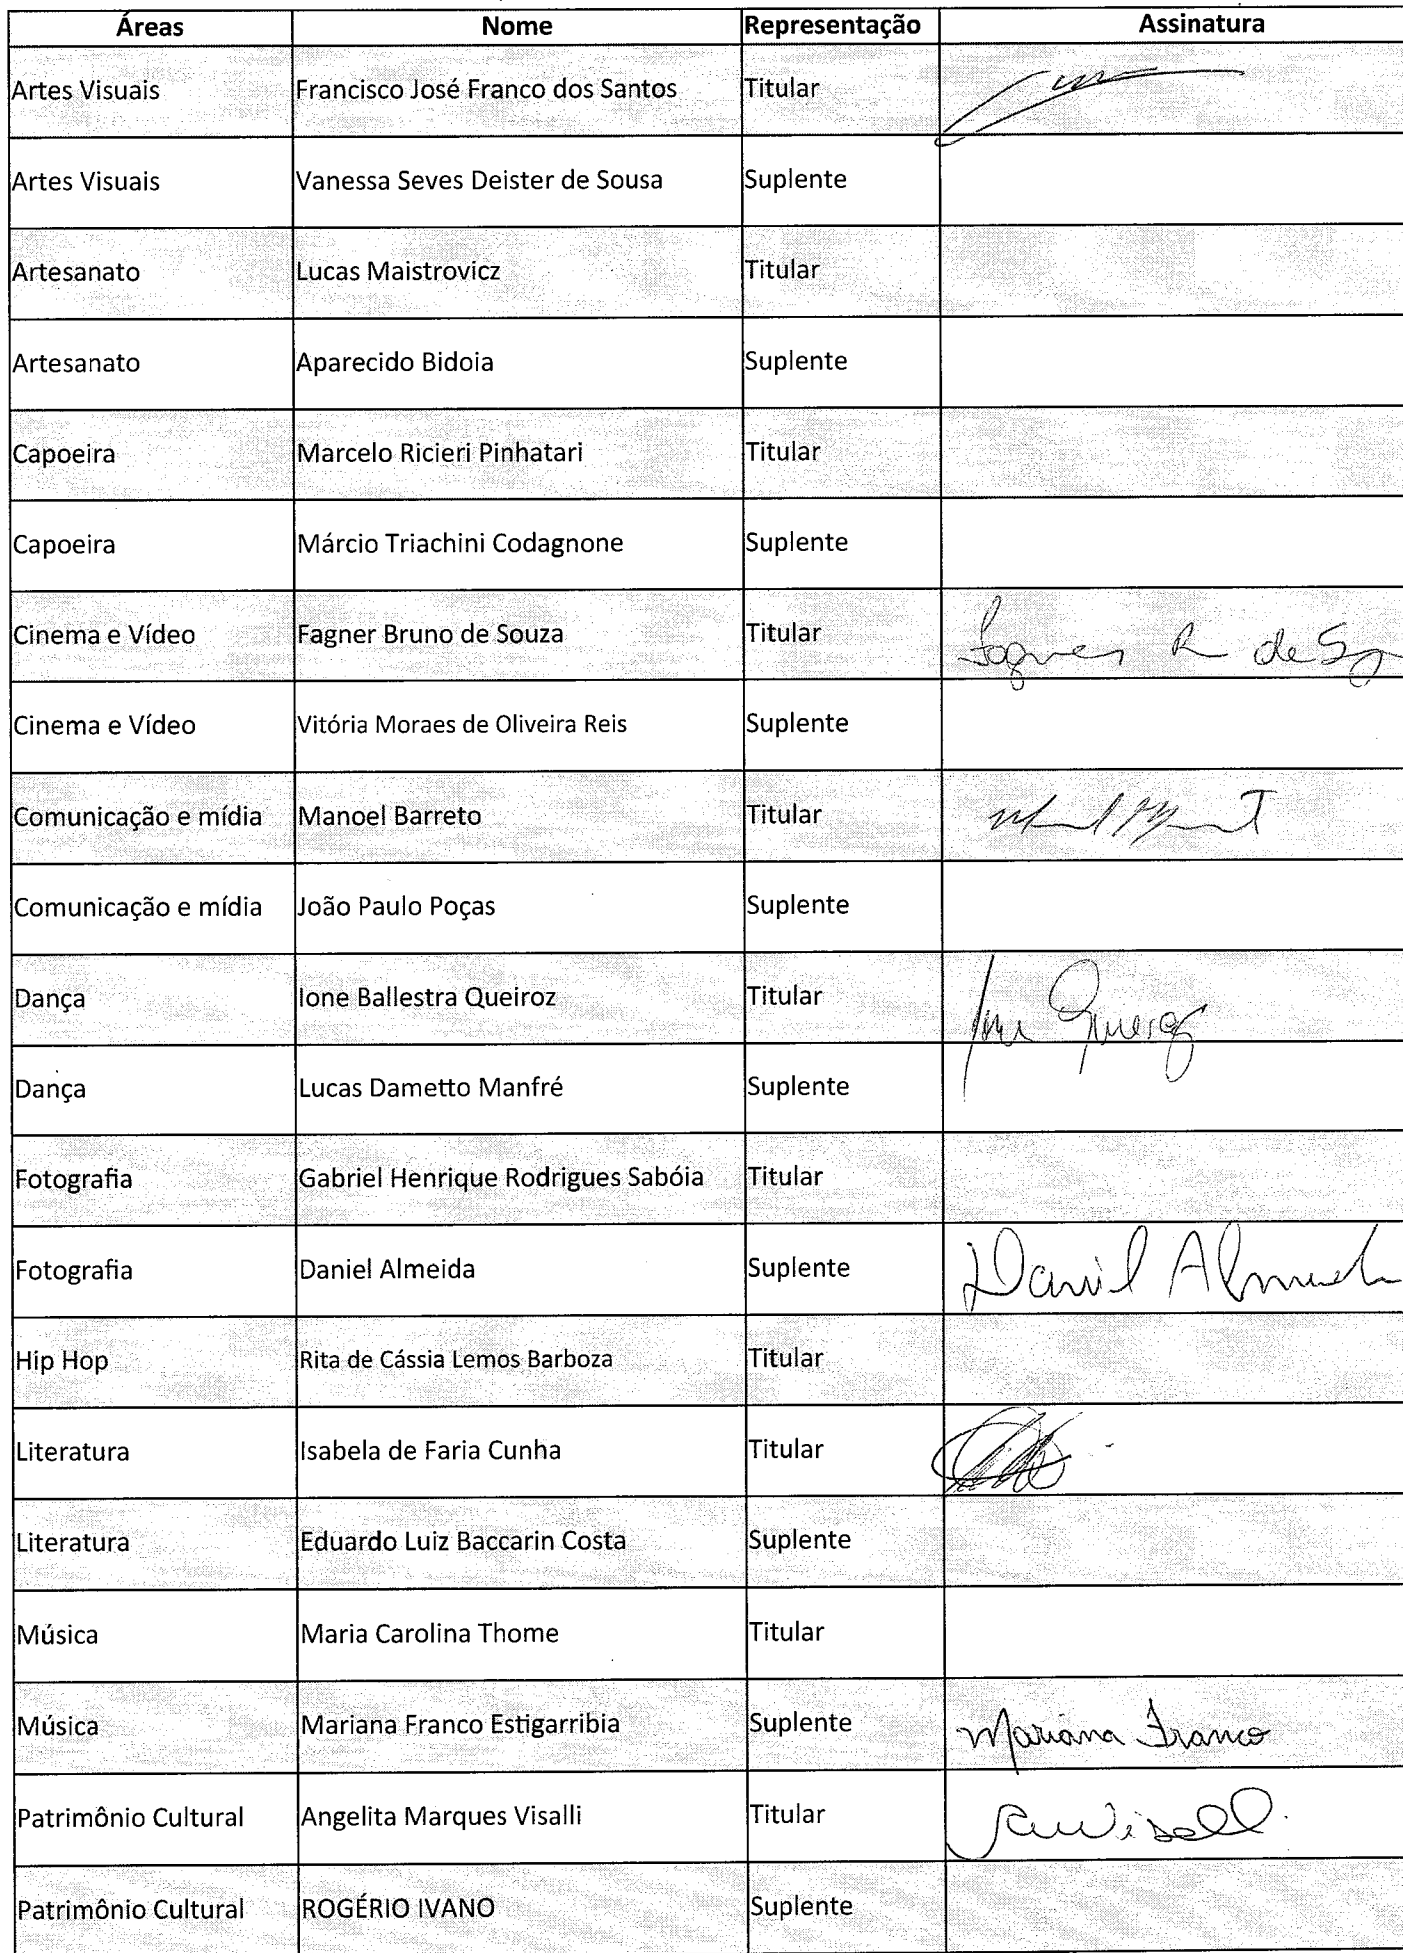 Áreas Nome Representação Assinatura
Artes Visuais Francisco José Franco dos Santos Titular
Artes Visuais Vanessa Seves Deister de Sousa Suplente
Artesanato Lucas Maistrovicz Titular
Artesanato Aparecido Bidoia Suplente
Capoeira Marcelo Ricieri Pinhatari Titular
Capoeira Márcio Triachini Codagnone Suplente
Cinema e Vídeo Fagner Bruno de Souza Titular Fagner de
Cinema e Vídeo Vitória Moraes de Oliveira Reis Suplente
Comunicação e mídia Manoel Barreto Titular
Comunicação e mídia João Paulo Poças Suplente
Dança Ione Ballestra Queiroz Titular Ione Queiroz
Dança Lucas Dametto Manfré Suplente
Fotografia Gabriel Henrique Rodrigues Sabóia Titular
Fotografia Daniel Almeida Suplente Daniel Almeida
Hip Hop Rita de Cássia Lemos Barboza Titular
Literatura Isabela de Faria Cunha Titular
Literatura Eduardo Luiz Baccarin Costa Suplente
Música Maria Carolina Thome Titular
Música Mariana Franco Estigarribia Suplente Mariana Franco
Patrimônio Cultural Angelita Marques Visalli Titular
Patrimônio Cultural ROGÉRIO IVANO Suplente